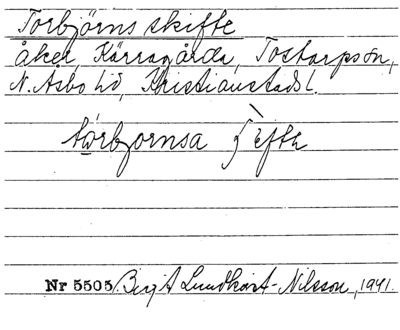 Torbjörns skifte
åker, Kärragårda, Tostarpsön,
N. Åsbo hd, Kristianstads l.
tórbjornsa
Nr 5505 Birgit Lundkvist-Nilsson, 1941.